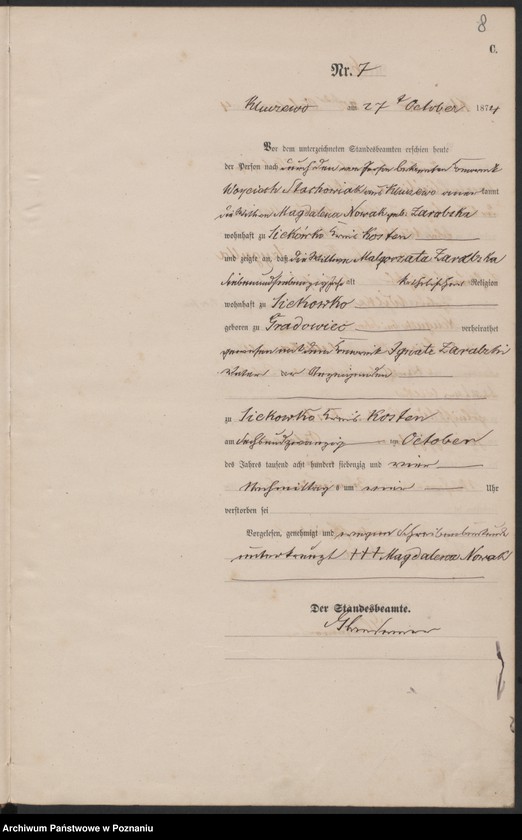 8
C.
Nr. 7
Kluczewo am 27 t October 1874
Vor dem unterzeichneten Standesbeamten erschien heute
der Person nach durch den von Person bekannten Komornik
Woyciech Stachowiak aus Kluczewo aner kannt
die Wittwe Magdalena Nowak geb. Zaralzka
wohnhaft zu Siekówko Kreis Kosten
und zeigte an, daß die Wittwe Małgorzata Zaralzka
siebenundsiebenzig Jahr alt katholischer Religion
wohnhaft zu Siekowko
geboren zu Gradowice verheirathet
gewesen mit dem Komornik Ignatz Zaralzki
Vater der Anzeigenden
zu Siekowko Kreis Kosten
am sechsundzwanzig ten October
des Jahres tausend acht hundert siebenzig und vier
Nachmittag s um vier Uhr
verstorben sei
Vorgelesen, genehmigt und wegen Schreibensunkunde
unterkreuzt +++ Magdalena Nowak
Der Standesbeamte.
Archiwum Państwowe w Poznaniu